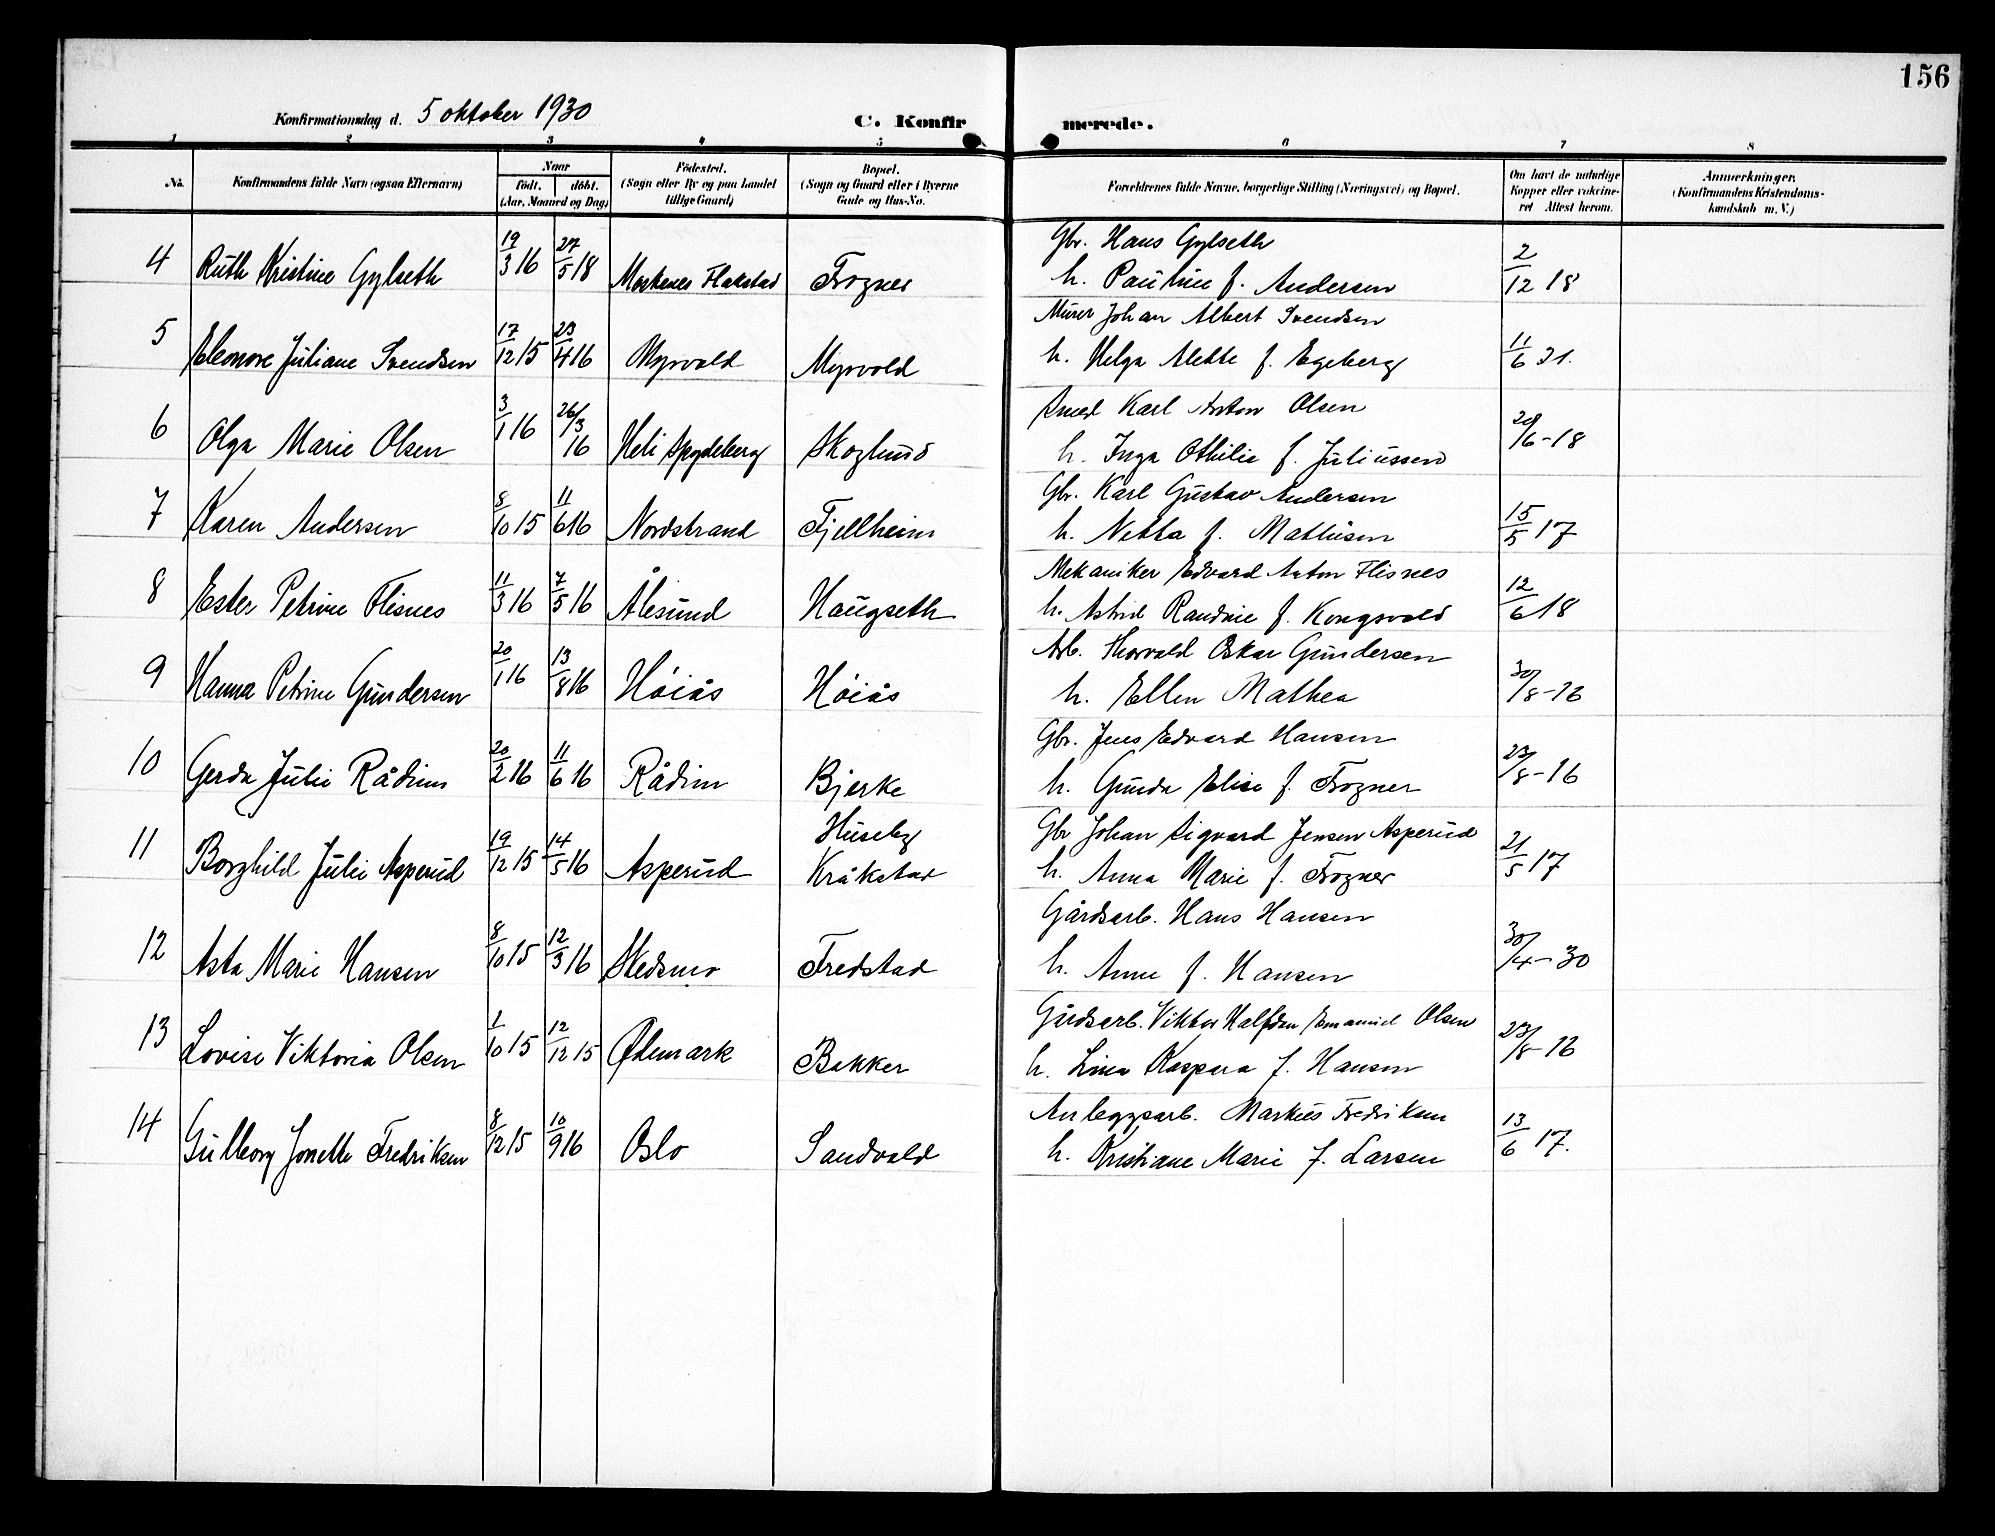 156
Konfirmationsdag d. 5 oktober 1930
C. Konfirmerede.
1 2 3 4 5 6 7 8
No. | Konfirmandens fulde Navn (ogsaa Efternavn) | Naar født. døbt. (Aar, Maaned og Dag) | Födested. (Sogn eller By og paa Landet tillige Gaard) | Bopæl. (Sogn og Gaard eller i Byerne Gade og Hus-No. | Forældrenes fulde Navne, borgerlige Stilling (Næringsvei) og Bopæl. | Om havt de naturlige Kopper eller vakcineret Attest herom. | Anmærkninger. (Konfirmandens Kristendomskundskab m. V.)
4 Ruth Kristine Gylseth 19/3 16 27/5 18 Moskenes Flakstad Frogner Gbr. Hans Gylseth
h. Pauline f. Andersen 2/12 18
5 Eleonore Juliane Svendsen 17/12 15 23/4 16 Myrvold Myrvold Murer Johan Albert Svendsen
h. Helga Alette f. Egeberg 11/6 21.
6 Olga Marie Olsen 3/1 16 26/3 16 Heli Spydeberg Skoglund Smed Karl Anton Olsen
h. Inga Othilie f. Juliussen 20/6-18
7 Karen Andersen 8/10 15 11/6 16 Nordstrand Fjellheim Gbr. Karl Gustav Andersen
h. Netta f. Mathisen 15/5 17
8 Ester Petrine Flisnes 11/3 16 7/5 16 Ålesund Haugseth Mekaniker Edvard Anton Flisnes
h. Astrid Randine f. Kongsvold 12/6 18
9 Hanna Petrine Gundersen 20/1 16 13/8 16 Høiås Høiås Arb. Thorvald Oskar Gundersen
h. Ellen Mathea 30/8-16
10 Gerda Julie Rådim 20/2 16 11/6 16 Rådim Bjerke Gbr. Jens Edvard Hansen
h. Gunda Elise f. Frogner 23/8-16
11 Borghild Julie Asperud 19/12 15 14/5 16 Asperud Huseby Kråkstad Gbr Johan Sigvard Jensen Asperud
h. Anna Marie f. Frogner 21/5 17
12 Asta Marie Hansen 8/10 15 12/3 16 Skedsmo Fredstad Gårdsarb. Hans Hansen
h. Anne f. Hansen 30/4-30
13 Lovise Viktoria Olsen 1/10 15 12/12 15 Ødemark Bakker Gårdsarb. Viktor Halfdan Emanuel Olsen
h. Lina Kaspara f. Hansen 23/8-16
14 Gulborg Jonette Fredriksen 8/12 15 10/9 16 Oslo Sandvold Anleggsarb. Markus Fredriksen
h. Kristiane Marie f. Larsen 13/6 17.